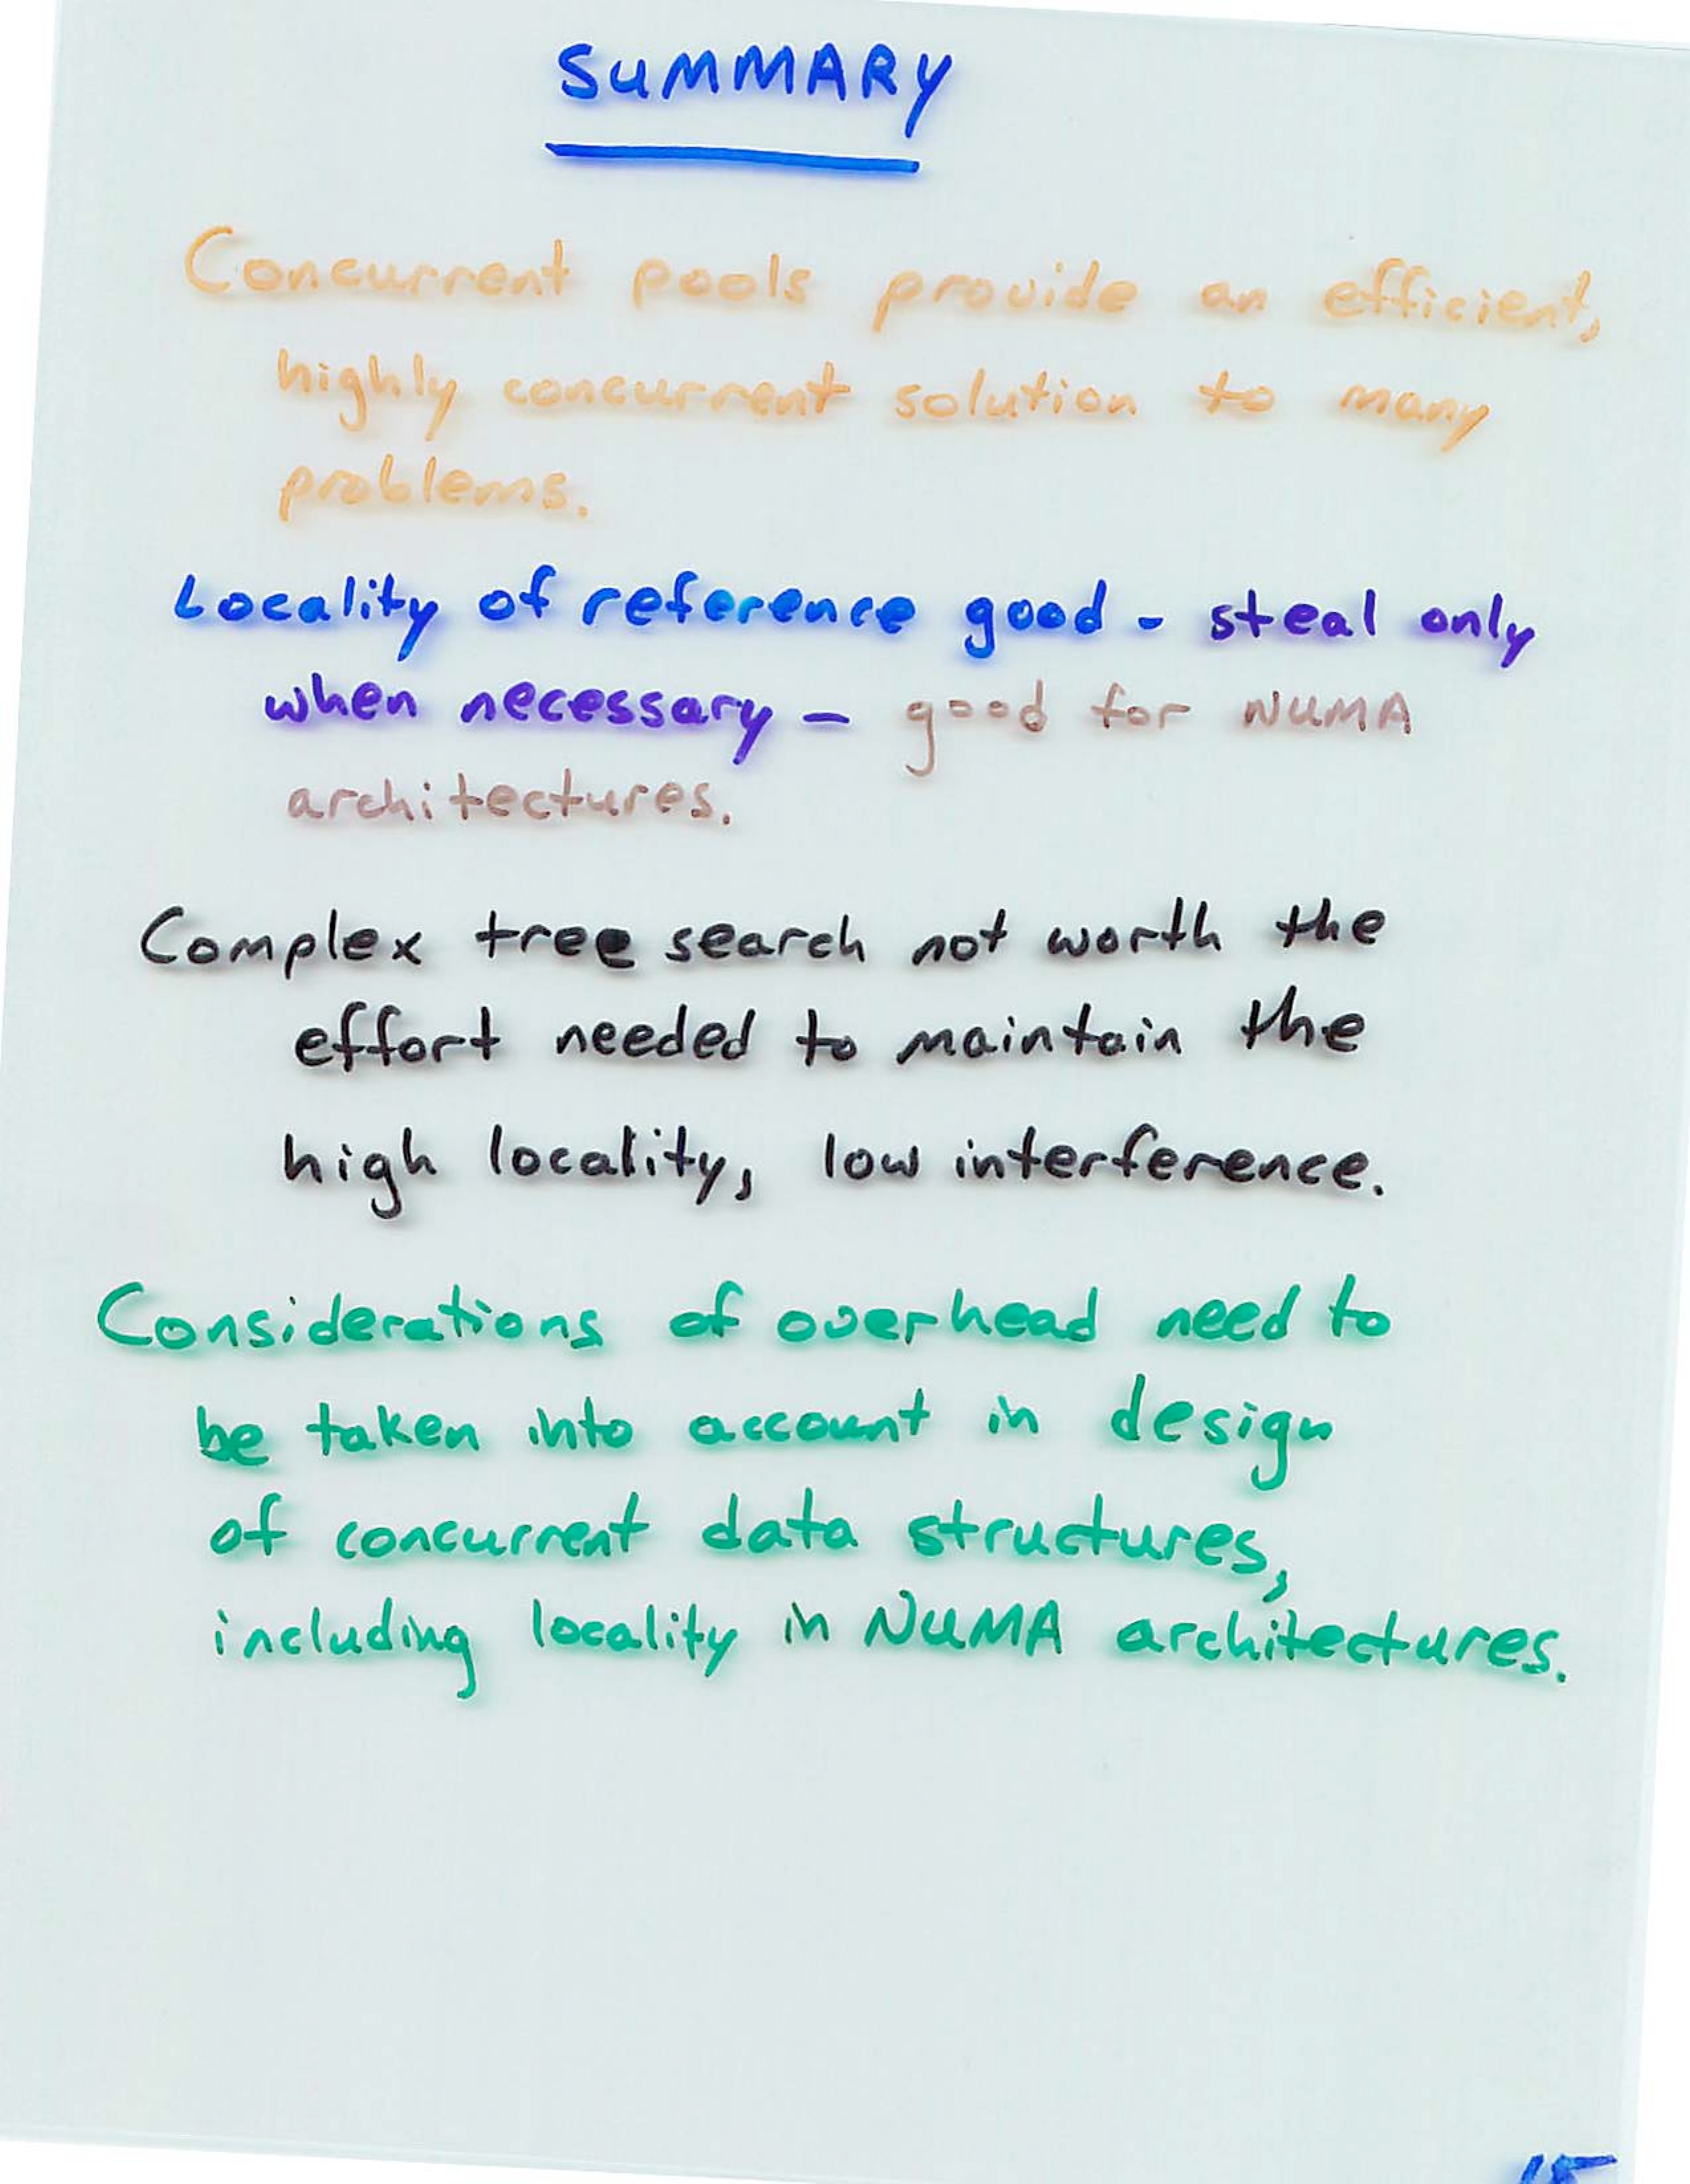 SUMMARY
Concurrent pools provide an efficient,
highly concurrent solution to many
problems.
Locality of reference good - steal only
when necessary - good for NUMA
architectures.
Complex tree search not worth the
effort needed to maintain the
high locality, low interference.
Considerations of overhead need to
be taken into account in design
of concurrent data structures,
including locality in NUMA architectures.
15